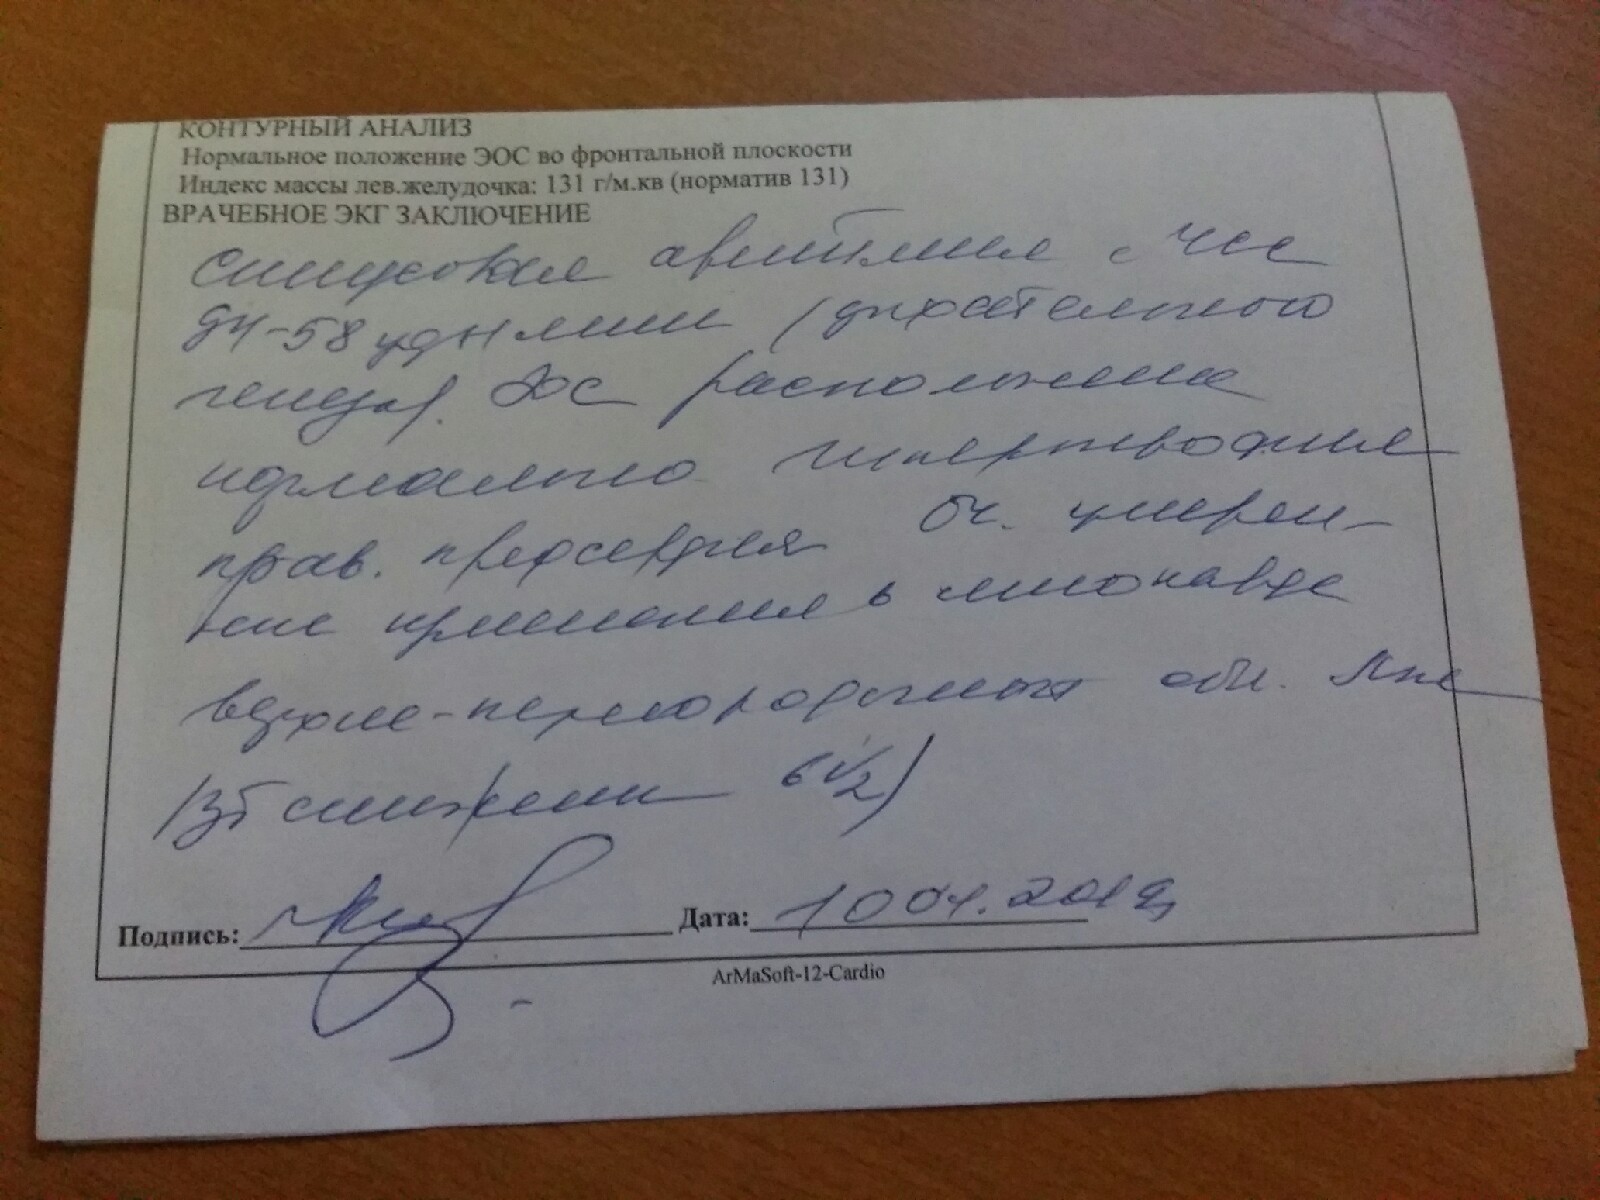 КОНТУРНЫЙ АНАЛИЗ
Нормальное положение ЭОС во фронтальной плоскости
Индекс массы лев.желудочка: 131 г/м.кв (норматив 131)
ВРАЧЕБНОЕ ЭКГ ЗАКЛЮЧЕНИЕ
Синусовая аритмия с ЧСС
-58 уд мин (дыхательного
генеза). ЭОС расположена
нормально Гипертрофия
прав. предсердия Оч. умерен-
ные изменения в миокарде
верхне-перегородочной обл. ЛЖ
(ST снижен в V2)
Подпись: Дата: 10 04. 2019
ArMaSoft-12-Cardio